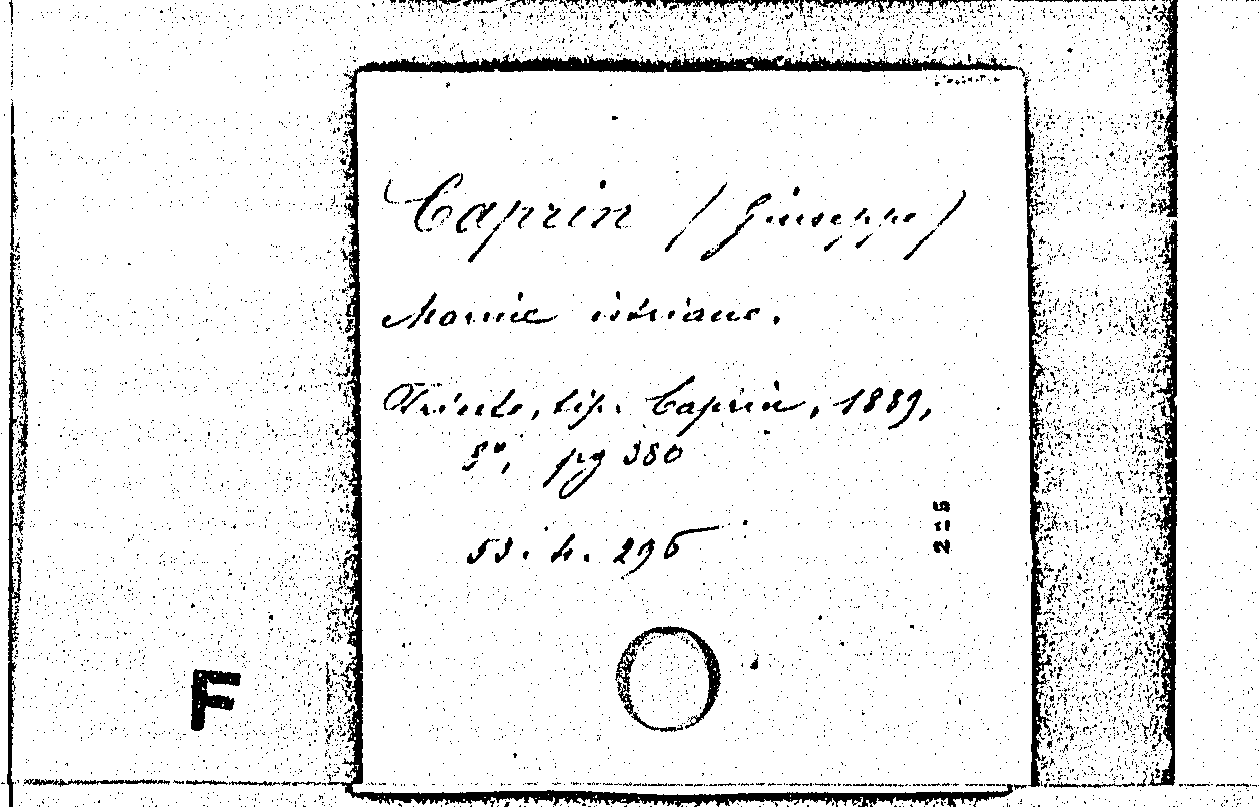 Caprin (Giuseppe)
Marine istriane.
Trieste, tip. Caprin, 1889,
8°, pg 380
53. h. 296
2=5
F